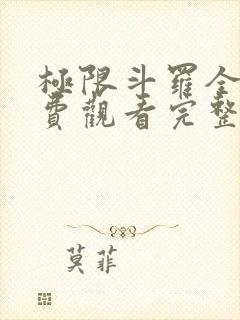 極限斗羅全
費觀看完整
莫菲